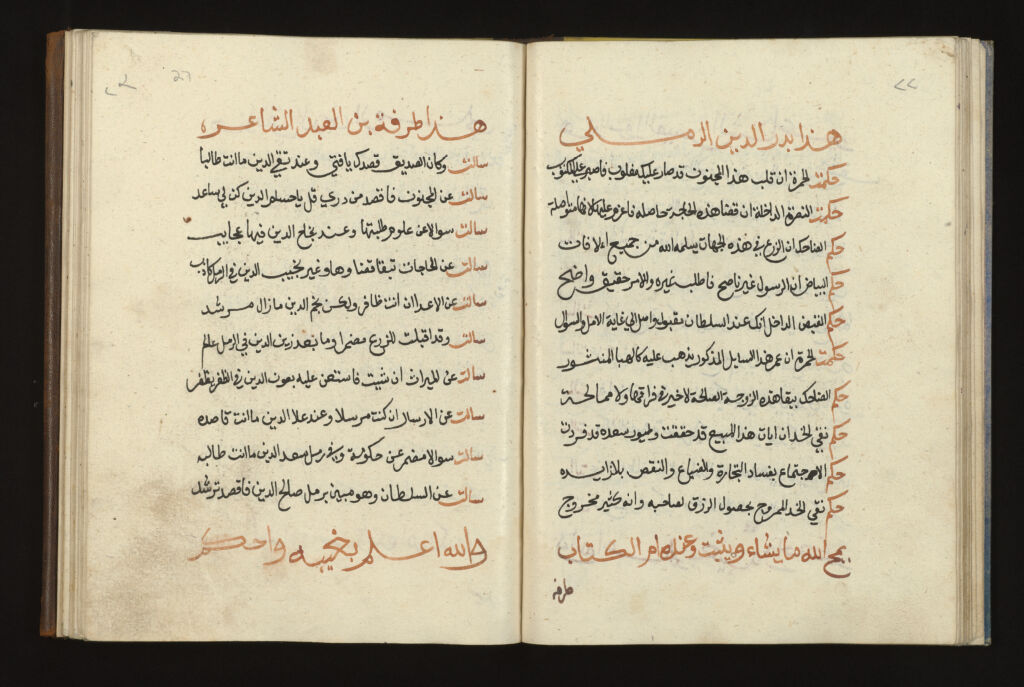 ٢٢
هذا بدر الدين الرملي
حكمت الحمرة ان قلب هذا المجنون قد صار عليك مقلوب فاصبر
حكمت النصرة الداخلة ان قضا هذه الحاجة حاصله فاعزم عليها
حكم الضاحك ان الزرع في هذه الجهات يسلمه الله من جميع الافات
حكم البياض ان الرسول غير ناصح فاطلب غيره والامر حقيق واضح
حكم القبض الداخل انك عند السلطان مقبول واصل الي غاية الامل والسوال
حكمت الحمرة ان عمر هذا السايل المذكور يذهب عليه كالهبا المنثور
حكم الضاحك ببقا هذه الزوجة الصالحة لاخير في فراقها ولا ممالحة
حكم نقي الخد ان ايات هذا المبيع قد حققت وطيور سعده قد غردت
حكم الاجتماع بفساد التجارة والضياع والنقص بلا زايده
حكم نقي الخد الممروج بحصول الرزق لصاحبه وانه كثير مخروج
يمح الله ما يشاء ويثبت وعنده ام الكتاب
طرفه
٢٣ 23
هذا طرفة بن العبد الشاعر
سالت وكان الصديق قصدك يا فتي وعند تقي الدين ما انت طالبا
سالت عن المجنون فاقصد من دري قل يا حسام الدين كن لي ساعد
سالت سوالا عن علوم طلبتها وعند نجاح الدين فيها عجايب
سالت عن الحاجات تبقا قضا وها وغير نجيب الدين في الرمل كاذب
سالت عن الاعدا انت ظافر ولكن نجم الدين ما زال مرشد
سالت وقد اقبلت للزرع مضمرا وما بعد زين الدين في الرمل عالم
سالت عن الميراث ان شيت فاستعن عليه بعون الدين في الظفر يظفر
سالت عن الارسال ان كنت مرسلا وعند علا الدين ما انت قاصده
سالت سوالا مضمر عن حكومة وفي رمل سعد الدين ما انت طالبه
سالت عن السلطان وهو مبين برمل صالح الدين فاقصد ترشد
والله اعلم بغيبه واحكم